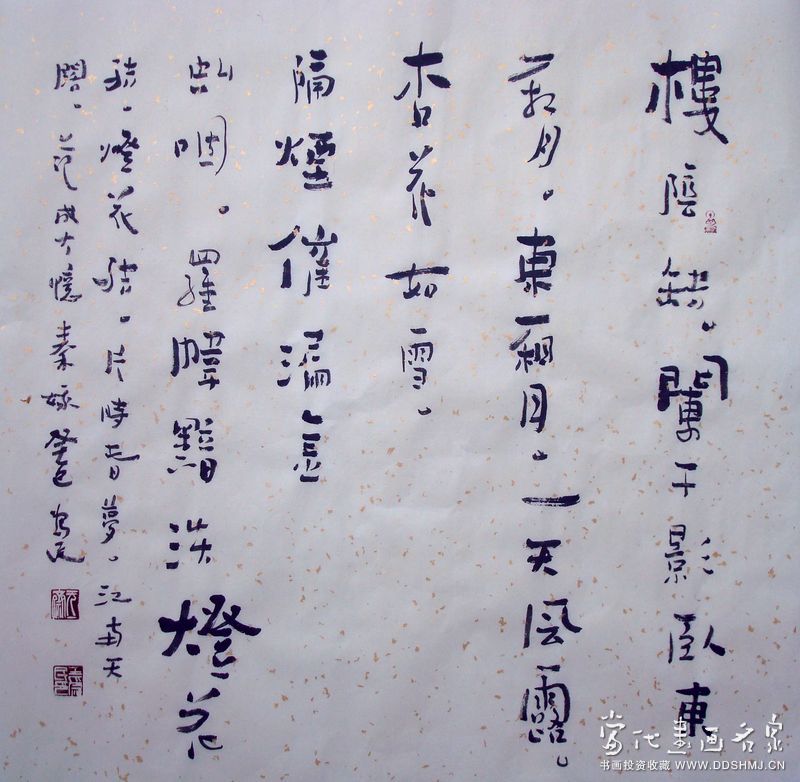 樓陰缺。闌干影臥東
廂月。東廂月。一天風露。
杏花如雪。
隔煙催漏金
虬咽。羅幃黯淡燈花
結。燈花結。片時春夢。江南天
闊。范成大憶秦娥
當代書画名家
书画投资收藏 WWW.DDSHMJ.CN